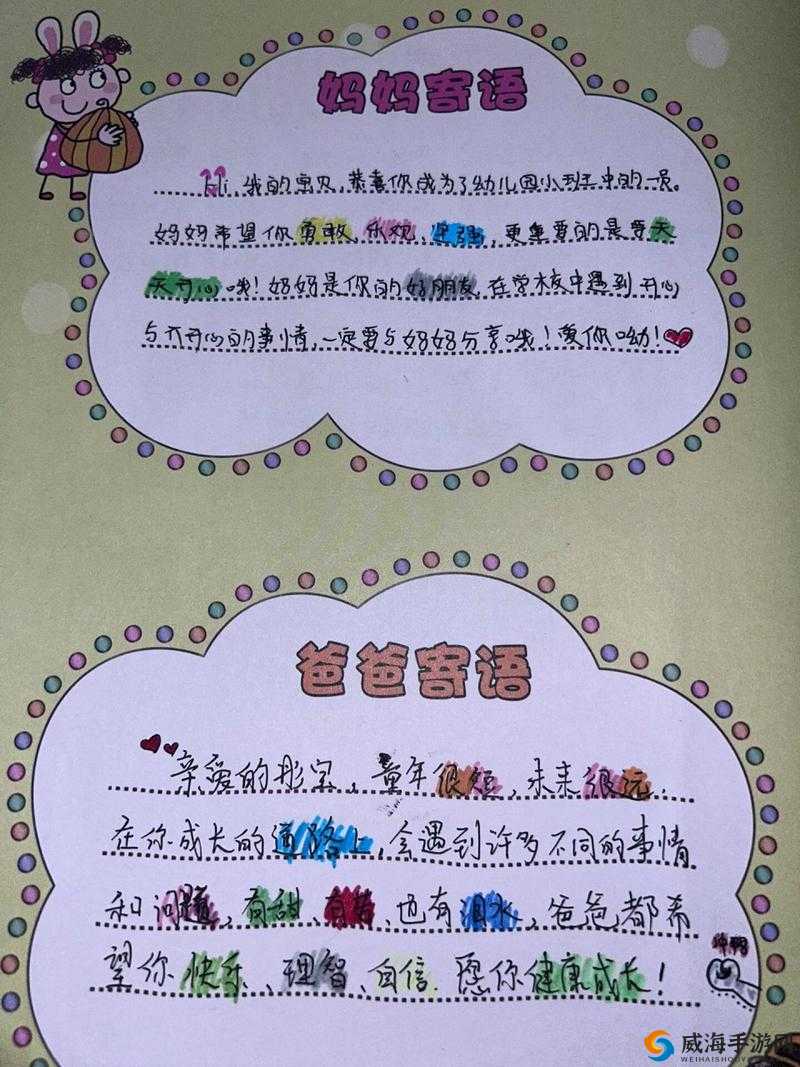 妈妈寄语
Hi 我的宝贝,恭喜你成为了幼儿园小班中的一员。
妈妈希望你勇敢,乐观,坚强,更重要的是要天
天开心哦!妈妈是你的好朋友,在学校中遇到开心
与不开心的事情,一定要与妈妈分享哦!爱你呦!
爸爸寄语
亲爱的彤宝,童年很短,未来很远.
在你成长的道路上,会遇到许多不同的事情
和问题,有甜、有苦、也有泪水,爸爸都希
望你快乐、理智、自信.愿你健康成长!
威海手游网
WEIHAISHOUYOUWANG